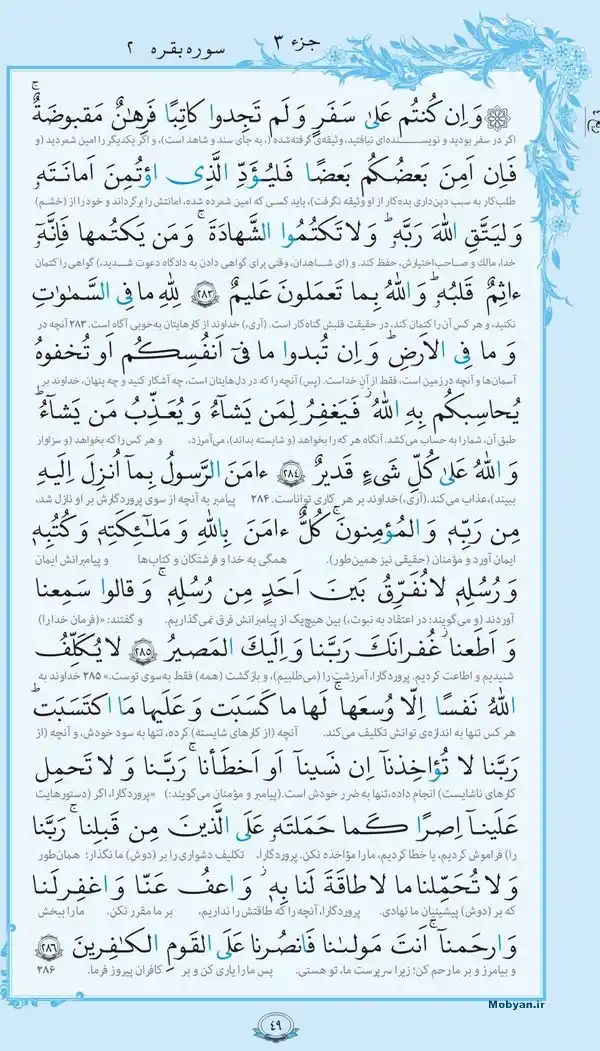 جزء ۳
سوره بقره ۲
وَ اِن كُنتُم عَلىٰ سَفَرٍ وَ لَم تَجِدوا كاتِبًا فَرِهٰنٌ مَقبوضَةٌ ۚ
اگر در سفر بودید و نویسنده‌ای نیافتید، وثیقه‌ی گرفته‌شده (، به جای سند و شاهد است)، و اگر یکدیگر را امین شمردید (و
فَاِن اَمِنَ بَعضُكُم بَعضًا فَليُؤَدِّ الَّذِى اؤتُمِنَ اَمانَتَهٗ
طلب‌کار به سبب دین‌داری بده‌کار از او وثیقه نگرفت)، باید کسی که امین شمرده شده، امانتش را برگرداند و خود را از (خشم)
وَ ليَتَّقِ اللهَ رَبَّهٗ ۗ وَ لا تَكتُمُوا الشَّهادَةَ ۚ وَ مَن يَكتُمها فَاِنَّهٗٓ
خدا، مالک و صاحب‌اختیارش، حفظ کند. و (ای شاهدان، وقتی برای گواهی دادن به دادگاه دعوت شدید،) گواهی را کتمان
ءاثِمٌ قَلبُهٗ ۗ وَ اللهُ بِما تَعمَلونَ عَليمٌ ﴿٢٨٣﴾ لِلّٰهِ ما فِى السَّمٰوٰتِ
نکنید، و هر کس آن را کتمان کند، در حقیقت قلبش گناه‌کار است. (آری،) خداوند از کارهایتان به‌خوبی آگاه است. ۲۸۳ آنچه در
وَ ما فِى الاَرضِ ۗ وَ اِن تُبدوا ما فىٓ اَنفُسِكُم اَو تُخفوهُ
آسمان‌ها و آنچه در زمین است، فقط از آنِ خداست. (پس) آنچه را که در دل‌هایتان است، چه آشکار کنید و چه پنهان، خداوند بر
يُحاسِبكُم بِهِ اللهُ ۖ فَيَغفِرُ لِمَن يَشآءُ وَ يُعَذِّبُ مَن يَشآءُ ۗ
طبق آن، شما را به حساب می‌کشد. آنگاه هر که را بخواهد (و شایسته بداند)، می‌آمرزد، و هر کس را که بخواهد (و سزاوار
وَ اللهُ عَلىٰ كُلِّ شَىءٍ قَديرٌ ﴿٢٨٤﴾ ءامَنَ الرَّسولُ بِمآ اُنزِلَ اِلَيهِ
ببیند)، عذاب می‌کند. (آری،) خداوند بر هر کاری تواناست. ۲۸۴ پیامبر به آنچه از سوی پروردگارش بر او نازل شد،
مِن رَبِّهٖ وَ المُؤمِنونَ ۚ كُلٌّ ءامَنَ بِاللهِ وَ مَلٰٓئِكَتِهٖ وَ كُتُبِهٖ
ایمان آورد و مؤمنان (حقیقی نیز همین‌طور). همگی به خدا و فرشتگان و کتاب‌ها و پیامبرانش ایمان
وَ رُسُلِهٖ لا نُفَرِّقُ بَينَ اَحَدٍ مِن رُسُلِهٖ ۚ وَ قالوا سَمِعنا
آوردند (و می‌گویند: در اعتقاد به نبوت،) بین هیچ‌یک از پیامبرانش فرق نمی‌گذاریم. و گفتند: «(فرمان خدا را)
وَ اَطَعنا ۖ غُفرانَكَ رَبَّنا وَ اِلَيكَ المَصيرُ ﴿٢٨٥﴾ لا يُكَلِّفُ
شنیدیم و اطاعت کردیم. پروردگارا، آمرزشت را (می‌طلبیم)، و بازگشت (همه) فقط به‌سوی توست.» ۲۸۵ خداوند به
اللهُ نَفسًا اِلّا وُسعَها ۚ لَها ما كَسَبَت وَ عَلَيها مَا اكتَسَبَت ۗ
هر کس تنها به اندازه‌ی توانش تکلیف می‌کند. آنچه (از کارهای شایسته) کرده، تنها به سود خودش، و آنچه (از
رَبَّنا لا تُؤاخِذنآ اِن نَسينآ اَو اَخطَأنا ۚ رَبَّنا وَ لا تَحمِل
کارهای ناشایست) انجام داده، تنها به ضرر خودش است. (پیامبر و مؤمنان می‌گویند:) «پروردگارا، اگر (دستورهایت
عَلَينآ اِصرًا كَما حَمَلتَهٗ عَلَى الَّذينَ مِن قَبلِنا ۚ رَبَّنا
را) فراموش کردیم، یا خطا کردیم، ما را مؤاخذه نکن. پروردگارا، تکلیف دشواری را بر (دوش) ما نگذار؛ همان‌طور
وَ لا تُحَمِّلنا ما لا طاقَةَ لَنا بِهٖ ۖ وَ اعفُ عَنّا وَ اغفِر لَنا
که بر (دوش) پیشینیان ما نهادی. پروردگارا، آنچه را که طاقتش را نداریم، بر ما مقرر نکن. ما را ببخش
وَ ارحَمنآ ۚ اَنتَ مَولىٰنا فَانصُرنا عَلَى القَومِ الكٰفِرينَ ﴿٢٨٦﴾
و بیامرز و بر ما رحم کن؛ زیرا سرپرست ما، تو هستی. پس ما را یاری کن و بر کافران پیروز فرما. ۲۸۶
Mobyan.ir
۴۹